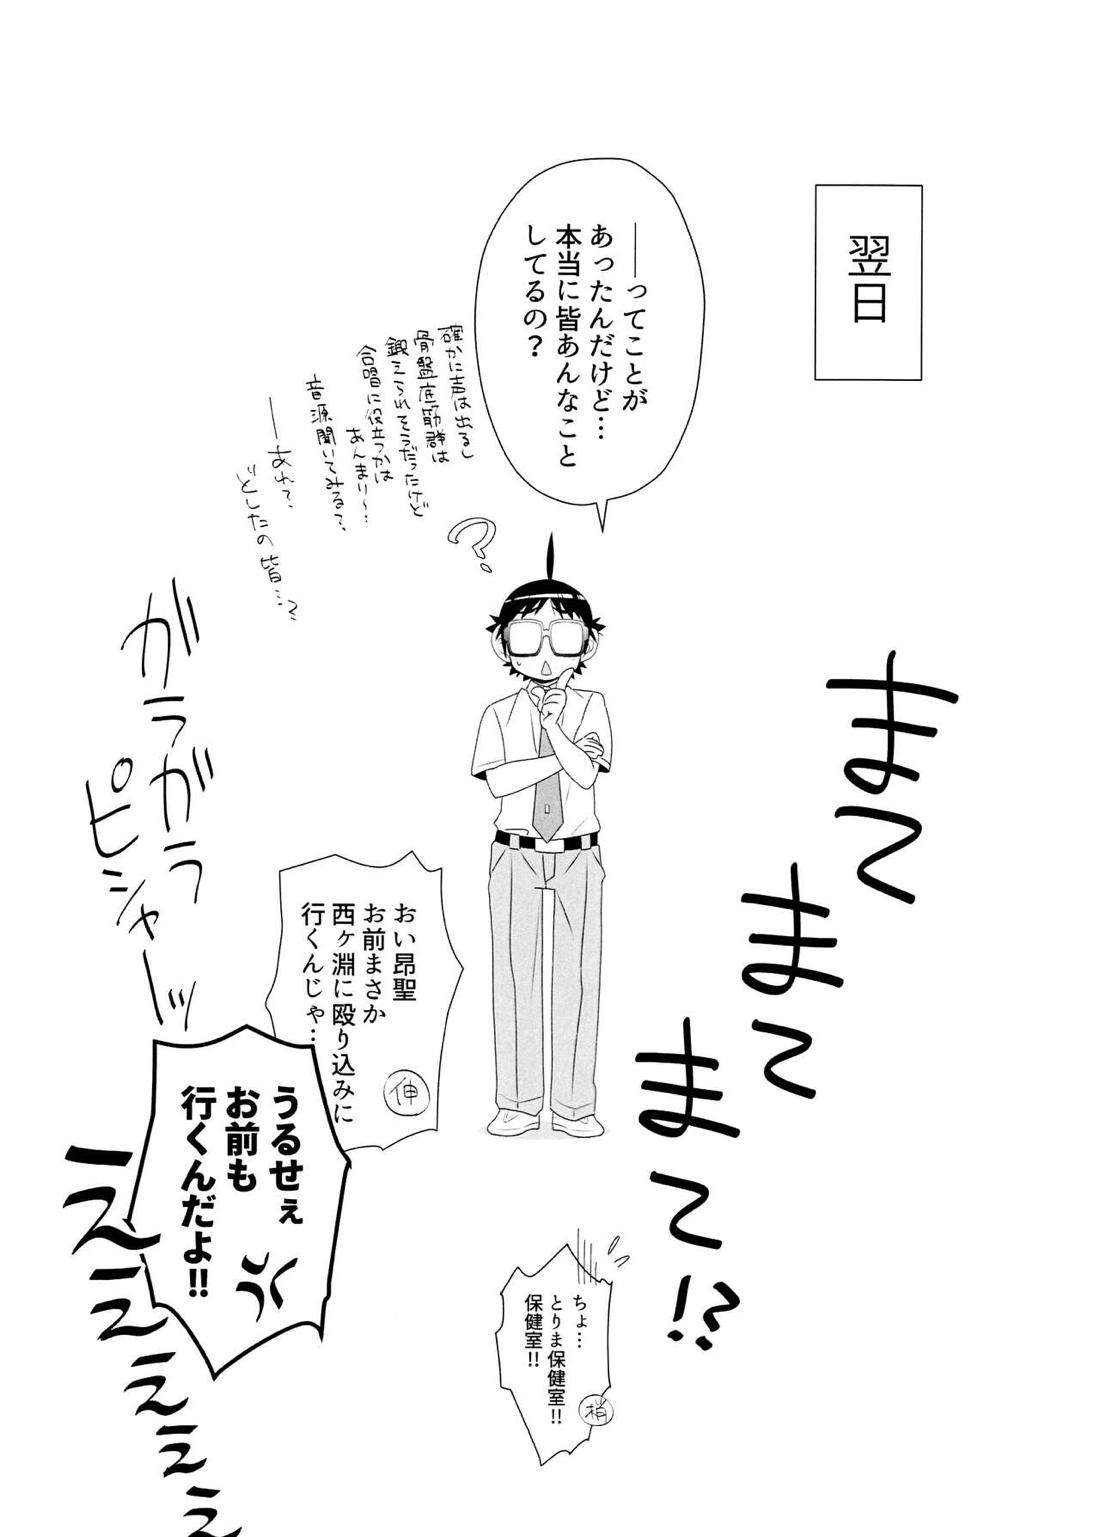 翌日
――ってことが
あったんだけど…
本当に皆あんなこと
してるの？
確かに声は出るし
骨盤底筋群は
鍛えられそうだったけど
合唱に役立つかは
あんまり〜…
音源聞いてみる？
――あれ？
どしたの皆…？
まてまてまて!?
ガラガラ
ピシャーッ
おい昂聖
お前まさか
西ヶ淵に殴り込みに
行くんじゃ…
伸
うるせぇ
お前も
行くんだよ!!
えええええ
ちょ…
とりま保健室!!
保健室!!
梢